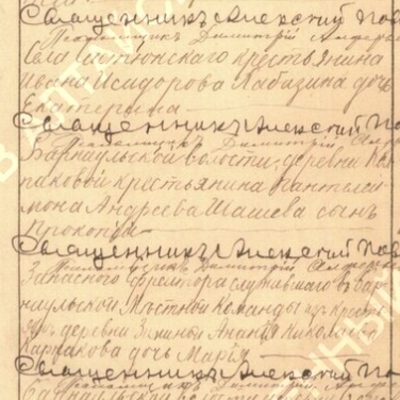 Священникъ Алексий Пов
Псаломщикъ Димитрій Анферь
Села Легостаевского крестьянина
Ивана Исидорова Лабазина дочь
Екатерина
Священникъ Алексий По
Псаломщикъ Димитрій
Барнаульской волости деревни
паковой крестьянина Пантелей
мона Андреева Шашева сынъ
Прокопій
Священникъ Алексий Пов
Псаломщикъ Димитрій Анферь
Запаснаго ефрейтора служившаго въ Бар
наульской Мѣстной Команды изъ кресть
янъ деревни Зиминой Ананія Николаева
Карпакова дочь Марія
Священникъ Алексий По
Псаломщикъ Димитрій Анфер
Барнаульской волости